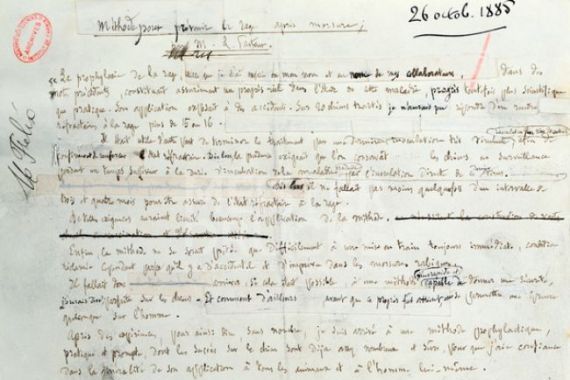 26 octob. 1885
ARCHIVES
Méthode pour prévenir la rage après morsure;
M. L. Pasteur.
La prophylaxie de la rage, telle que je l'ai en mon nom et au nom de mes collaborateurs, dans des
constituait assurément un progrès réel dans l'étude de cette maladie, progrès toutefois plus scientifique
que pratique. Son application exposait à des accidents. Sur 20 chiens traités je n'aurais pas répondu d'en rendre
réfractaires à la rage plus de 15 ou 16.
Il était utile d'autre part de terminer le traitement par une dernière inoculation très virulente, afin de
l'état réfractaire. En outre la prudence exigeait que l'on conservât les chiens en surveillance
pendant un temps supérieur à la durée d'incubation de la maladie par l'inoculation directe de
il ne fallait pas moins quelquefois d'un intervalle de
trois et quatre mois pour être assuré de l'état réfractaire à la rage.
De telles exigences auraient limité beaucoup l'application de la méthode.
Enfin la méthode ne se serait prêtée que difficilement à une mise en train toujours immédiate, condition
réclamée cependant par ce qu'il y a d'accidentel et d'imprévu dans les morsures rabiques.
Il fallait donc arriver, si cela était possible, à une méthode plus rapide et capable de donner une sécurité,
j'oserais dire parfaite sur les chiens. Et comment d'ailleurs avant que ce progrès fût atteint oser se permettre une épreuve
quelconque sur l'homme.
Après des expériences, pour ainsi dire sans nombre, je suis arrivé à une méthode prophylactique,
pratique et prompte, dont les succès sur le chien sont déjà assez nombreux et sûrs, pour que j'aie confiance
dans la généralité de son application à tous les animaux et à l'homme lui-même.